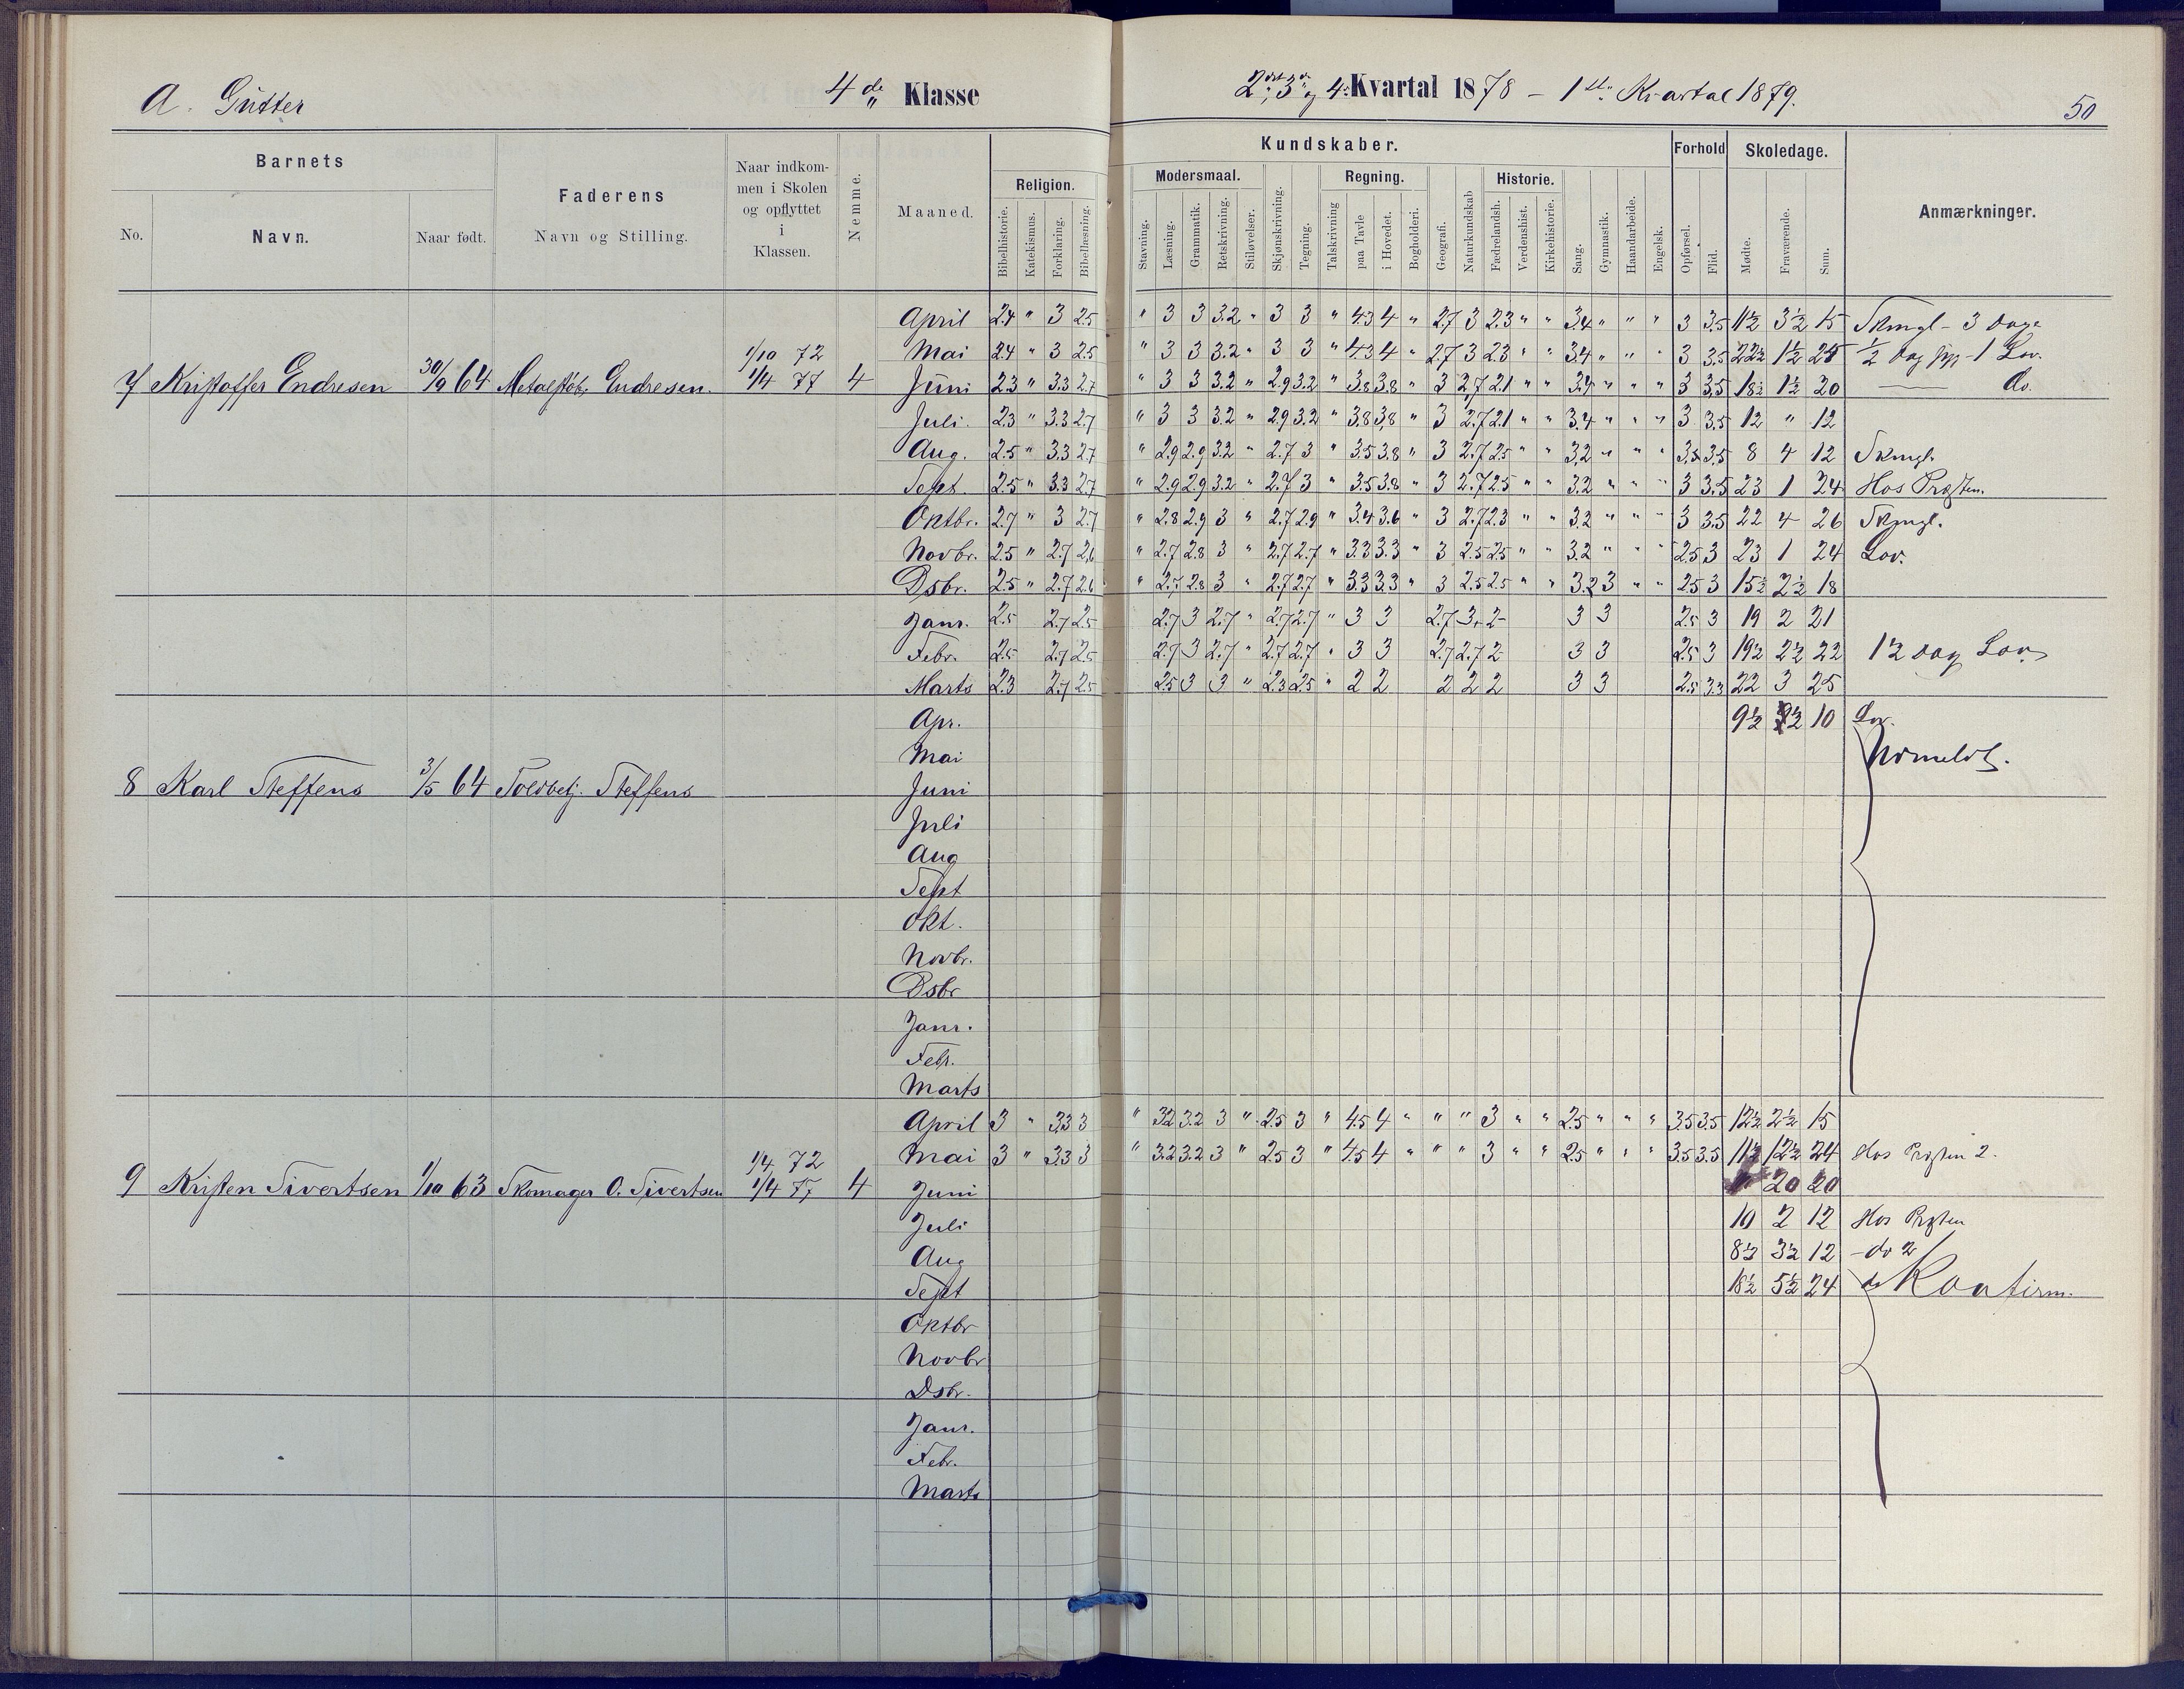 A. Gutter 4de Klasse 2det, 3die og 4. Kvartal 1878 – 1ste Kvartal 1879. 50
Barnets
No. Navn. Naar født.
Faderens
Navn og Stilling.
Naar indkom-
men i Skolen
og opflyttet
i
Klassen.
Nemme.
Maaned.
Kundskaber.
Religion.
Bibelhistorie. Katekismus. Forklaring. Bibellæsning.
Modersmaal.
Stavning. Læsning. Grammatik. Retskrivning. Stiløvelser.
Skjønskrivning. Tegning.
Regning.
Talskrivning paa Tavle i Hovedet.
Bogholderi. Geografi. Naturkundskab
Historie.
Fædrelandsh. Verdenshist. Kirkehistorie.
Sang. Gymnastik. Haandarbeide. Engelsk.
Forhold
Opførsel. Flid.
Skoledage.
Mødte. Fraværende. Sum.
Anmærkninger.
April 2.4 " 3 2.5 " 3 3 3.2 " 3 3 " 4.3 4 " 2.7 3 2.3 " " 3.4 " " " 3 3.5 11½ 3½ 15 Skmgl – 3 Dage
1/10 72 Mai 2.4 " 3 2.5 " 3 3 3.2 " 3 3 " 4.3 4 " 2.7 3 2.3 " " 3.4 " " " 3 3.5 22½ 1½ 24 ½ Dag – 1 Lov.
7 Kristoffer Endresen 30/9 64 Metalstøb. Endresen. 1/4 77 4 Juni 2.3 " 3.3 2.7 " 3 3 3.2 " 2.9 3.2 " 3.8 3.8 " 3 2.7 2.1 " " 3.4 " " " 3 3.5 18½ 1½ 20 — do.
Juli. 2.3 " 3.3 2.7 " 3 3 3.2 " 2.9 3.2 " 3.8 3.8 " 3 2.7 2.1 " " 3.4 " " " 3 3.5 12 " 12
Aug. 2.5 " 3.3 2.7 " 2.9 2.9 3.2 " 2.7 3 " 3.5 3.8 " 3 2.7 2.5 " " 3.2 " " " 3.5 3.5 8 4 12 Skmgl.
Sept. 2.5 " 3.3 2.7 " 2.9 2.9 3.2 " 2.7 3 " 3.5 3.8 " 3 2.7 2.5 " " 3.2 " " " 3 3.5 23 1 24 Hos Præsten.
Oktbr. 2.7 " 3 2.7 " 2.8 2.9 3 " 2.7 2.9 " 3.4 3.6 " 3 2.7 2.3 " " 3.2 " " " 3 3.5 22 4 26 Skmgl.
Novbr. 2.5 " 2.7 2.6 " 2.7 2.8 3 " 2.7 2.7 " 3.3 3.3 " 3 2.5 2.5 " " 3.2 " " " 2.5 3 23 1 24 Lov.
Dsbr. 2.5 " 2.7 2.6 " 2.7 2.8 3 " 2.7 2.7 " 3.3 3.3 " 3 2.5 2.5 " " 3.2 3 " " 2.5 3 15½ 2½ 18
Janr. 2.5 2.7 2.5 2.7 3 2.7 " 2.7 2.7 " 3 3 2.7 3+ 2- 3 3 2.5 3 19 2 21
Febr. 2.5 2.7 2.5 2.7 3 2.7 " 2.7 2.7 " 3 3 2.7 2.7 2 3 3 2.5 3 19½ 2½ 22 1½ Dag Lov
Marts 2.3 2.7 2.5 2.5 3 3 " 2.3 2.5 " 2 2 2 2 2 3 3 2.5 3.3 22 3 25
Apr. 9½ ½ 10 Lov.
Mai Udmeldt.
8 Karl Steffens 3/5 64 Toldbetj. Steffens Juni
Juli
Aug
Sept
Okt.
Novbr.
Dsbr
Janr.
Febr.
Marts
April 3 " 3.3 3 " 3.2 3.2 3 " 2.5 3 " 4.5 4 " " " 3 " " 2.5 " " " 3.5 3.5 12½ 2½ 15
1/4 72 Mai 3 " 3.3 3 " 3.2 3.2 3 " 2.5 3 " 4.5 4 " " " 3 " " 2.5 " " " 3.5 3.5 11½ 12½ 24 Hos Præsten 2.
9 Kristen Sivertsen 1/10 63 Skomager O. Sivertsen 1/4 77 4 Juni " 20 20
Juli 10 2 12 Hos Præsten
Aug 8½ 3½ 12 – do 2
Sept 18½ 5½ 24 do Konfirm.
Oktbr
Novbr
Dsbr.
Janr.
Febr.
Marts